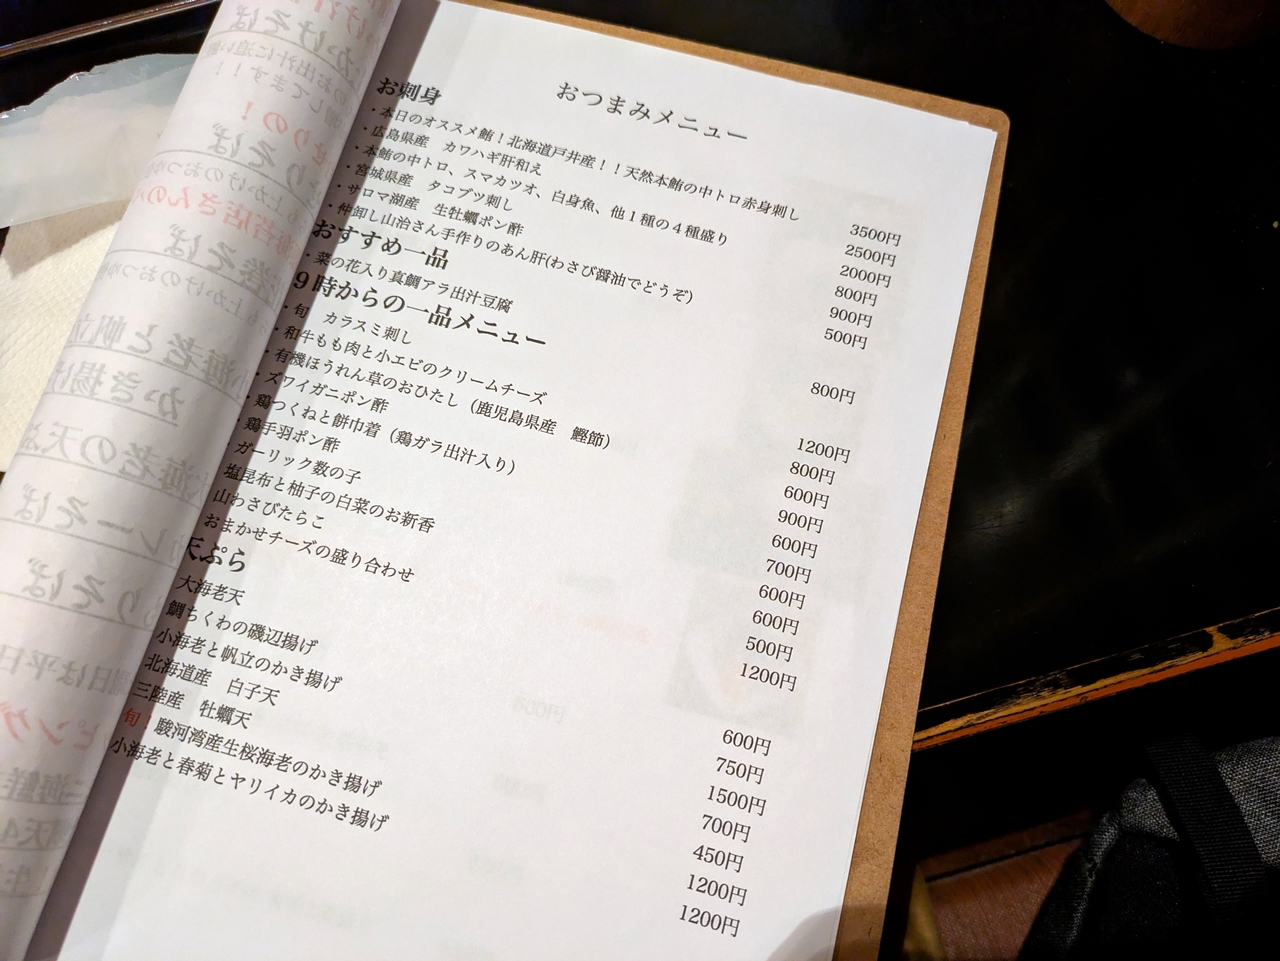 おつまみメニュー
お刺身
・本日のオススメ鮪！北海道戸井産！！天然本鮪の中トロ赤身刺し 3500円
・広島県産　カワハギ肝和え 2500円
・本鮪の中トロ、スマカツオ、白身魚、他１種の４種盛り 2000円
・宮城県産　タコブツ刺し 800円
・サロマ湖産　生牡蠣ポン酢 900円
・仲卸し山治さん手作りのあん肝(わさび醤油でどうぞ) 500円
おすすめ一品
・菜の花入り真鯛アラ出汁豆腐 800円
９時からの一品メニュー
・旬　カラスミ刺し 1200円
・和牛もも肉と小エビのクリームチーズ 800円
・有機ほうれん草のおひたし（鹿児島県産　鰹節） 600円
・ズワイガニポン酢 900円
・鶏つくねと餅巾着（鶏ガラ出汁入り） 600円
・鶏手羽ポン酢 700円
ガーリック数の子 600円
塩昆布と柚子の白菜のお新香 600円
山わさびたらこ 500円
おまかせチーズの盛り合わせ 1200円
天ぷら
大海老天 600円
鯛ちくわの磯辺揚げ 750円
小海老と帆立のかき揚げ 1500円
北海道産　白子天 700円
三陸産　牡蠣天 450円
旬！駿河湾産生桜海老のかき揚げ 1200円
小海老と春菊とヤリイカのかき揚げ 1200円